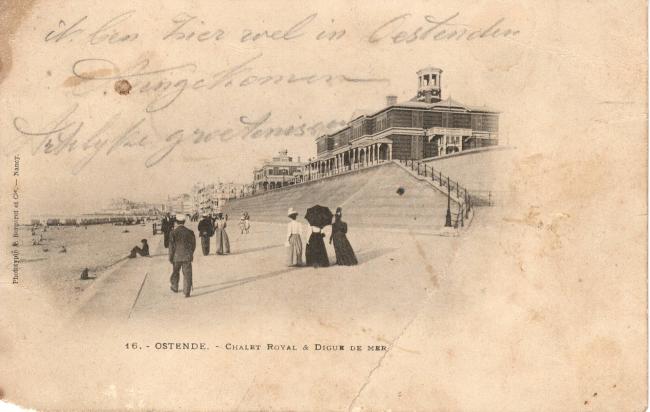 ik ben hier wel in Oostenden
Aangekomen
Hartelyke groetenissen
Phototypie P. Bergeret et Cie, — Nancy.
16. - OSTENDE. - CHALET ROYAL & DIGUE DE MER